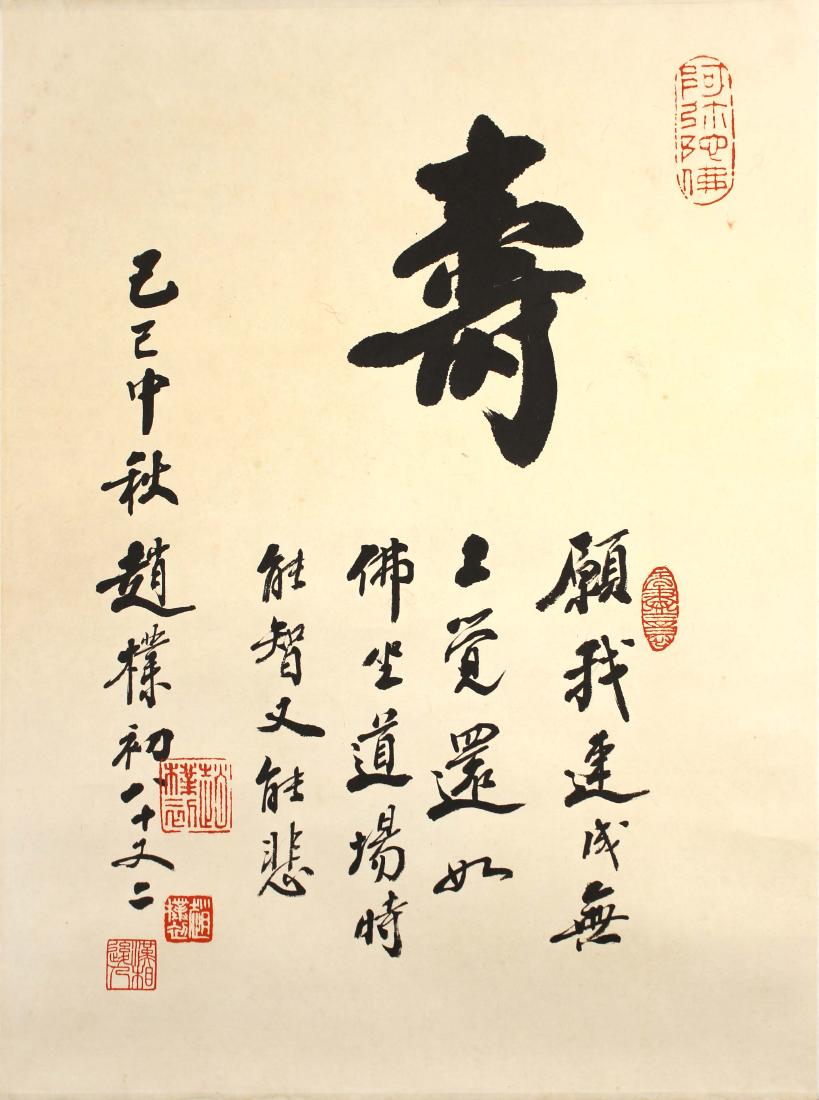 阿弥陀佛
壽
願我速成無
上覚還如
佛坐道場時
能智又能悲
己巳中秋趙樸初八十又二
趙樸初
趙樸初